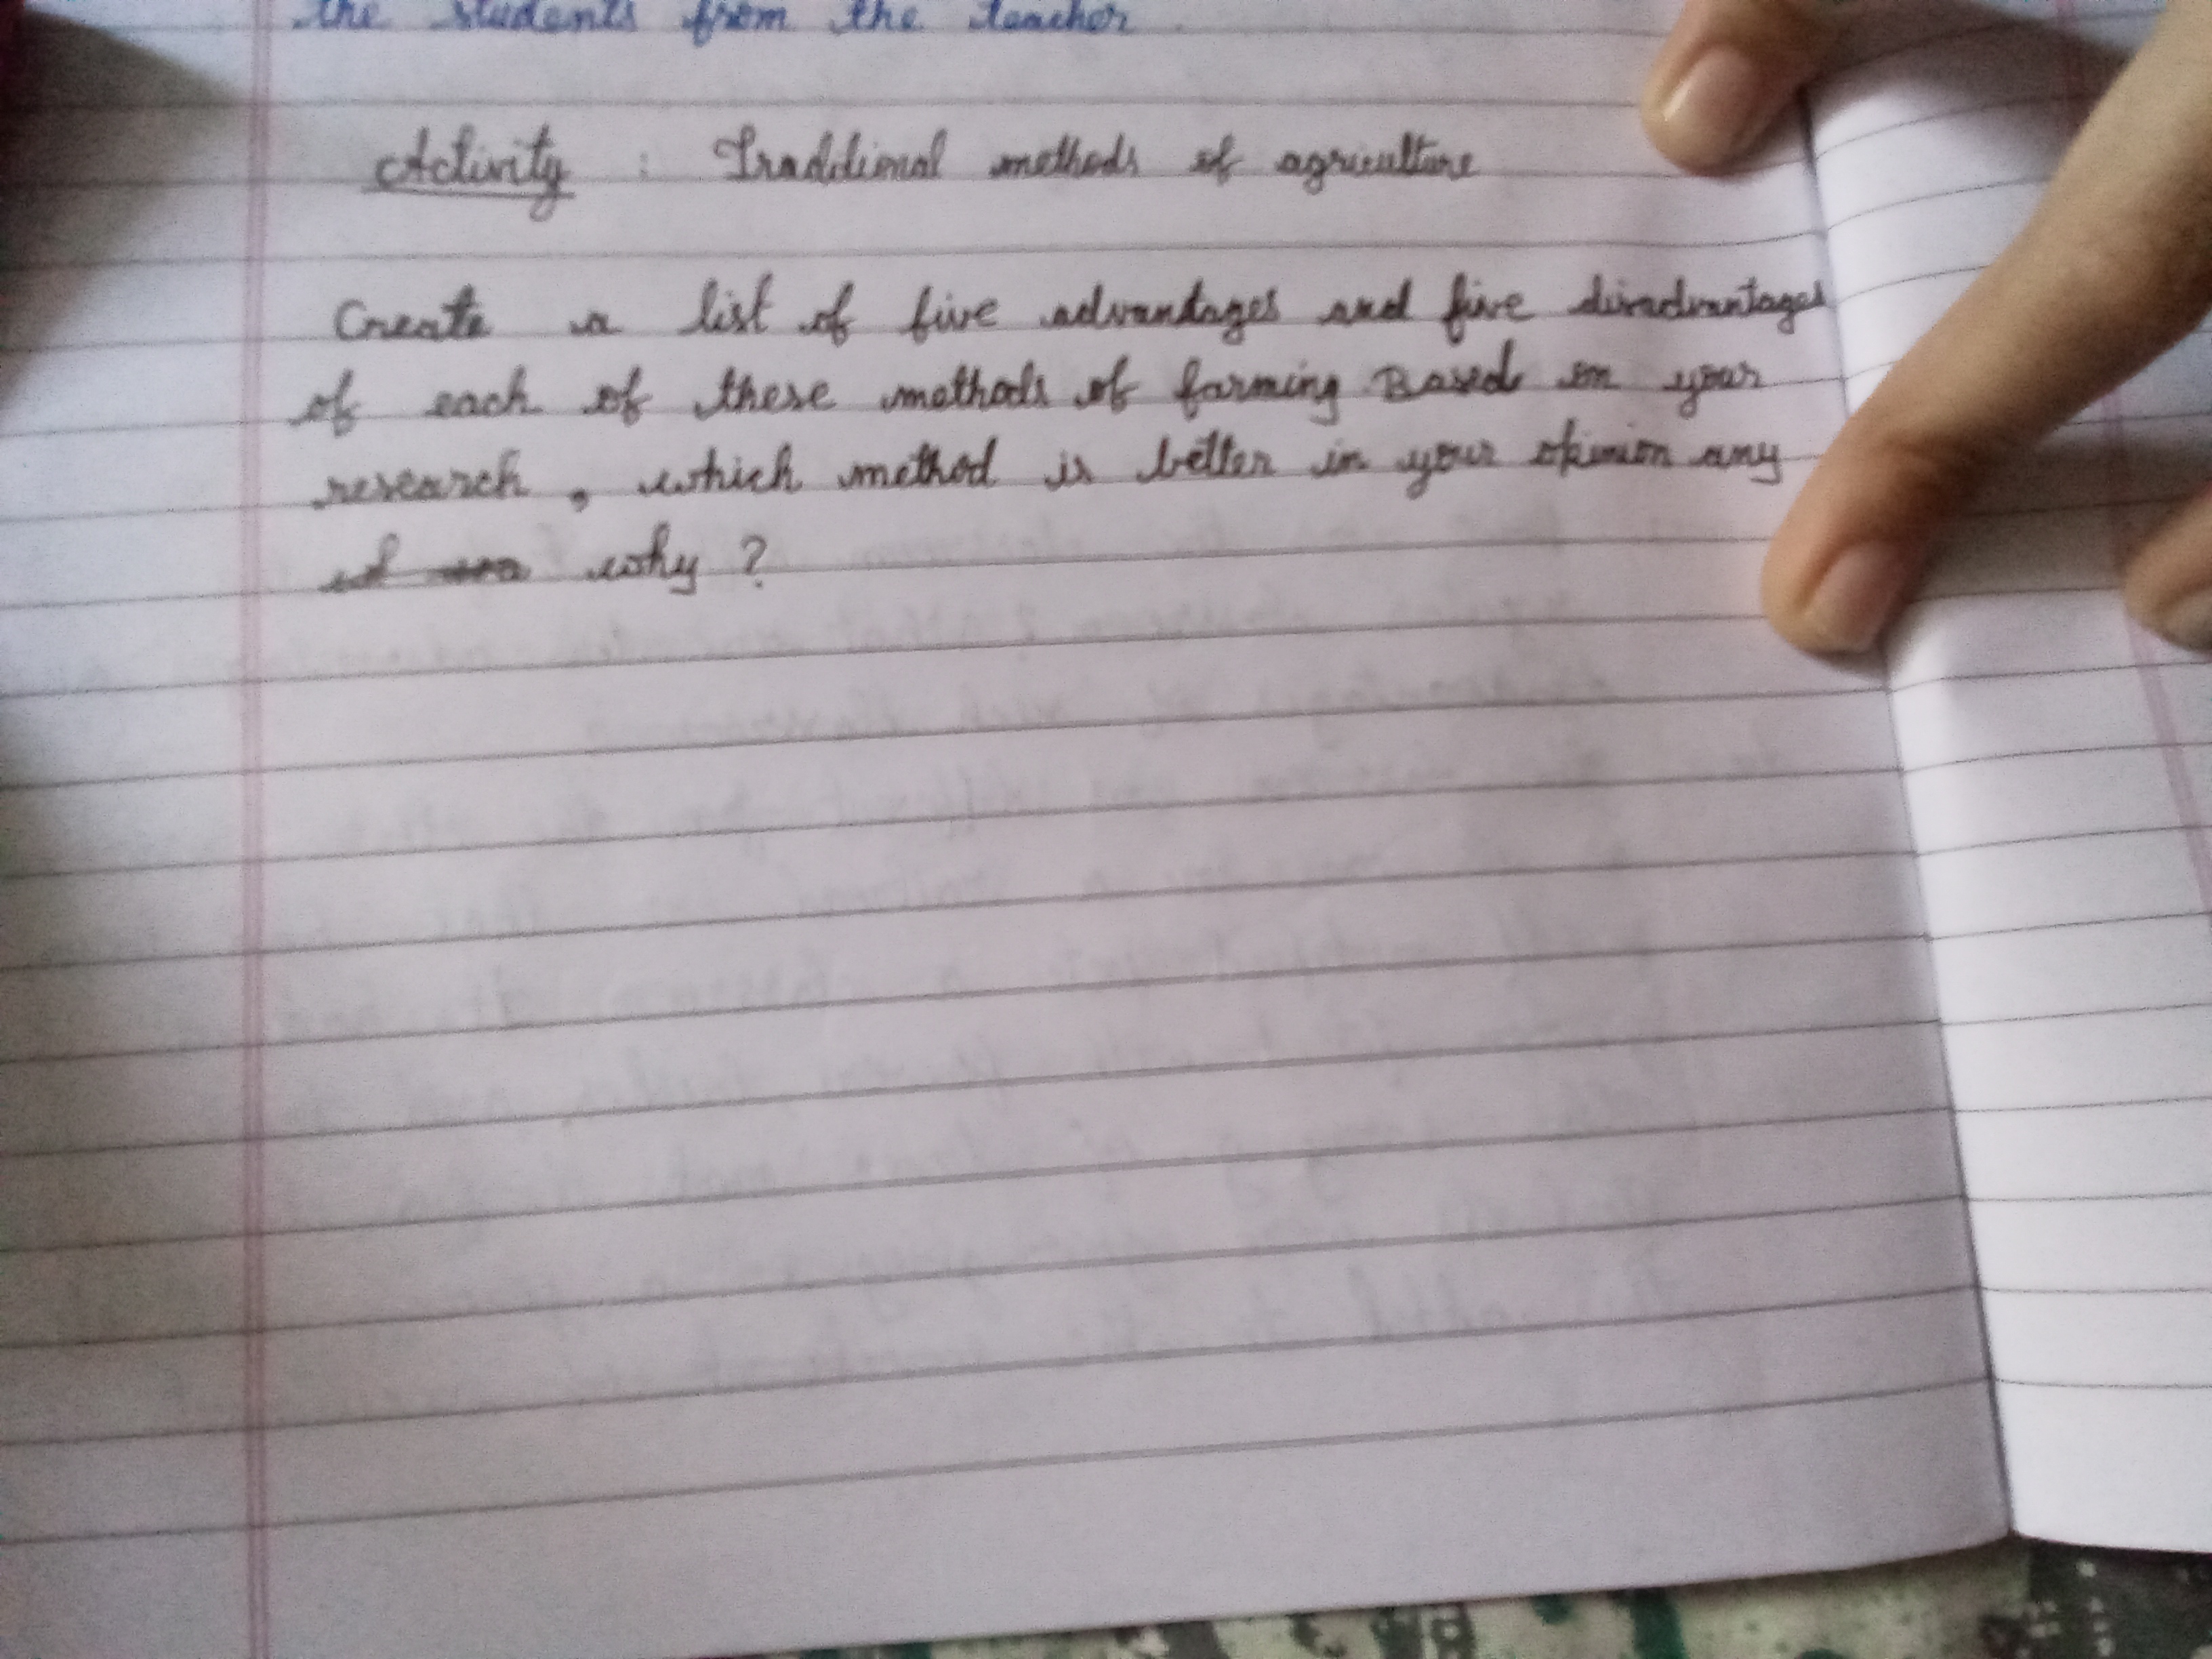 the students from the teacher
Activity : Traditional methods of agriculture
Create a list of five advantages and five disadvantages
of each of these methods of farming Based on your
research, which method is better in your opinion any
why ?